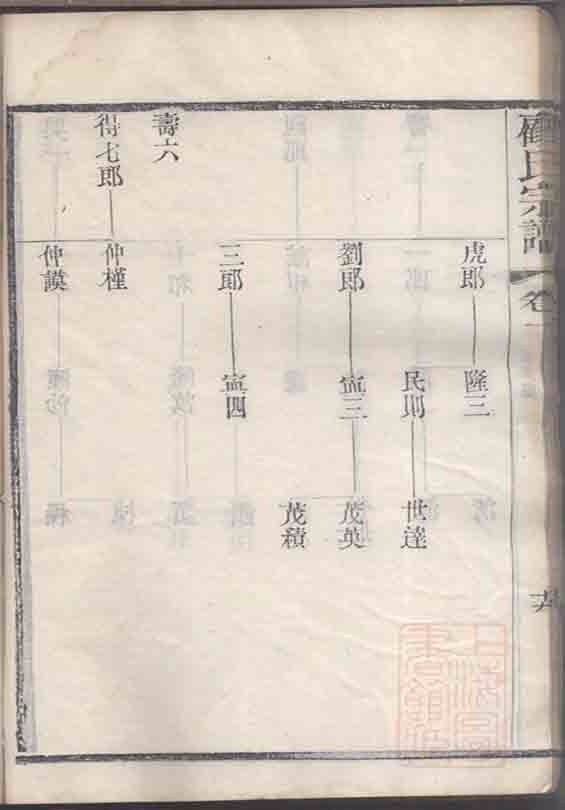 氏宗譜 卷一
虎郎
隆三
民則
世達
劉郎
寍三
茂英
茂積
三郎
寍四
壽六
得七郎
仲槿
仲謨